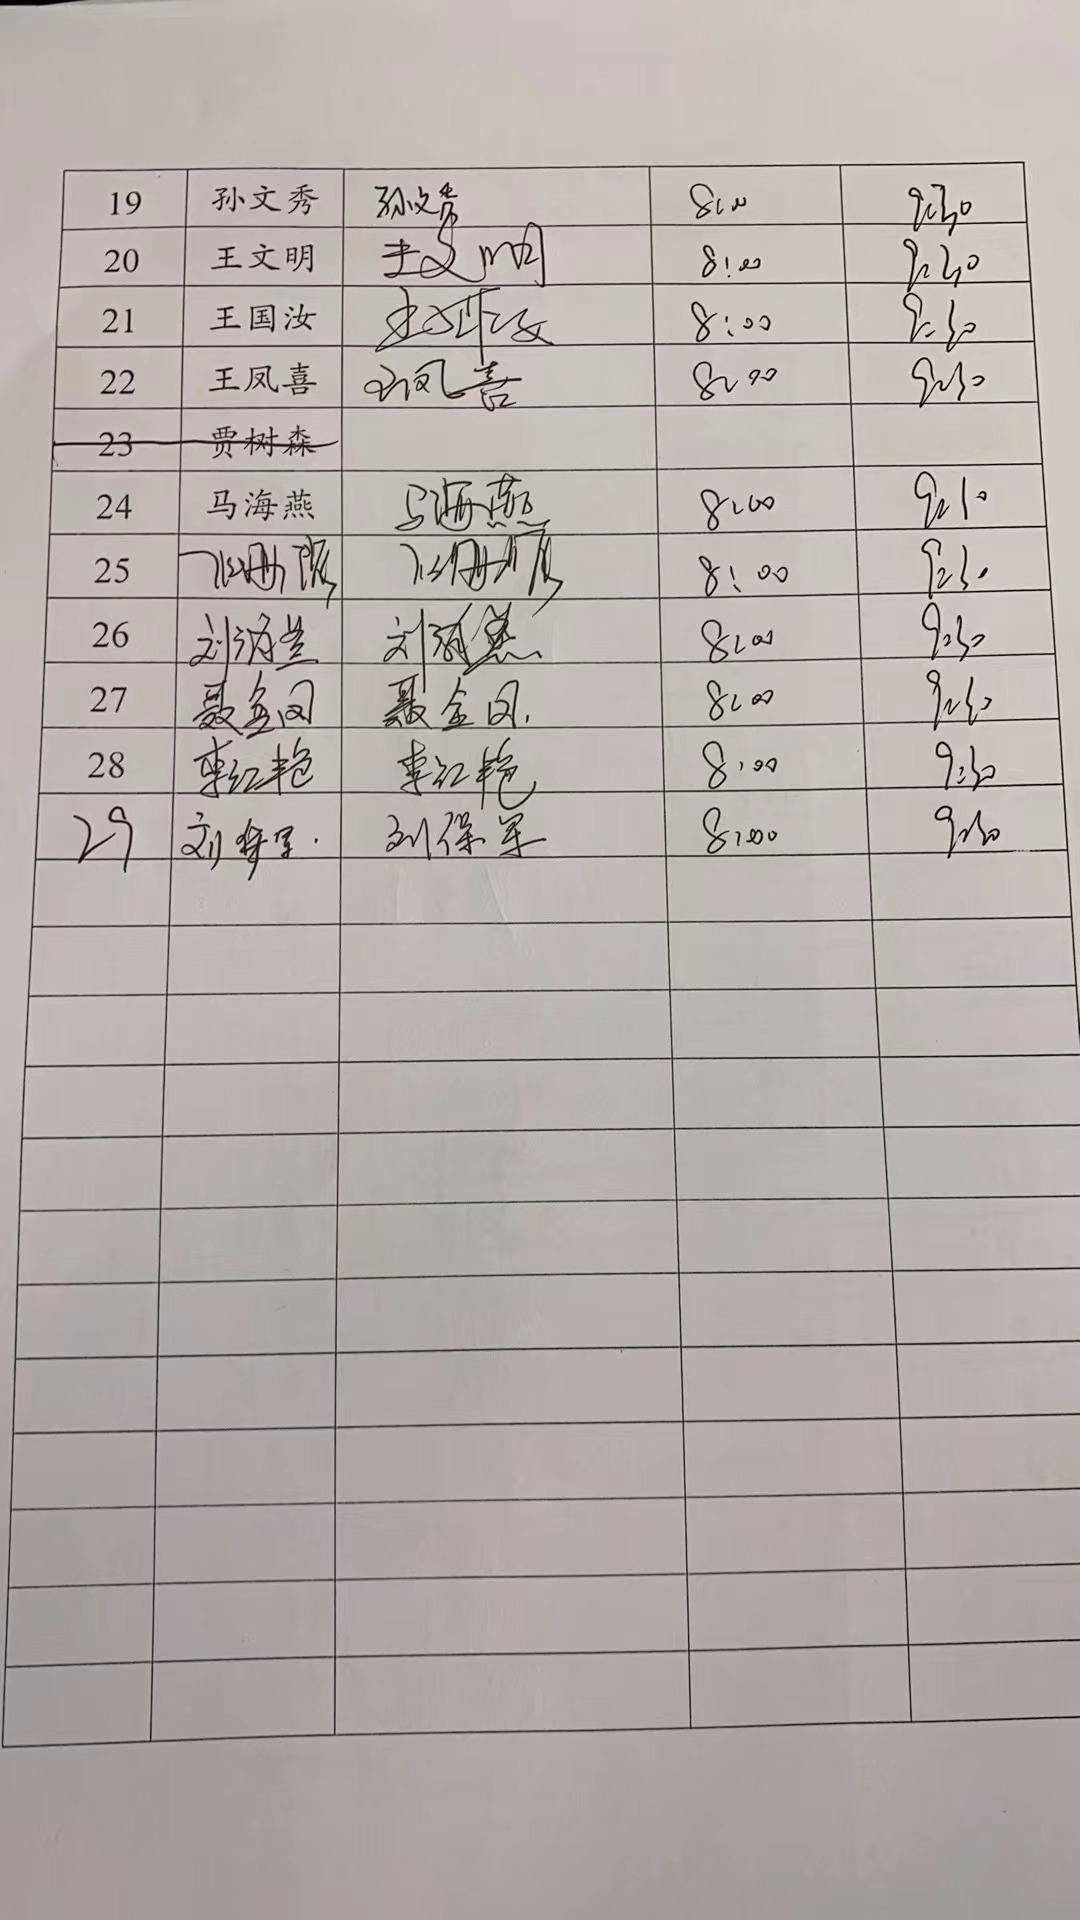 19 孙文秀 孙文秀 8:00 9:30
20 王文明 王文明 8:00 9:30
21 王国汝 王国汝 8:00 9:30
22 王凤喜 王凤喜 8:00 9:30
23 贾树森
24 马海燕 马海燕 8:00
25 8:00 9:30
26 刘 刘 8:00 9:30
27 聂金凤 聂金凤 8:00 9:30
28 李红艳 李红艳 8:00 9:30
29 刘保军 刘保军 8:00 9:30